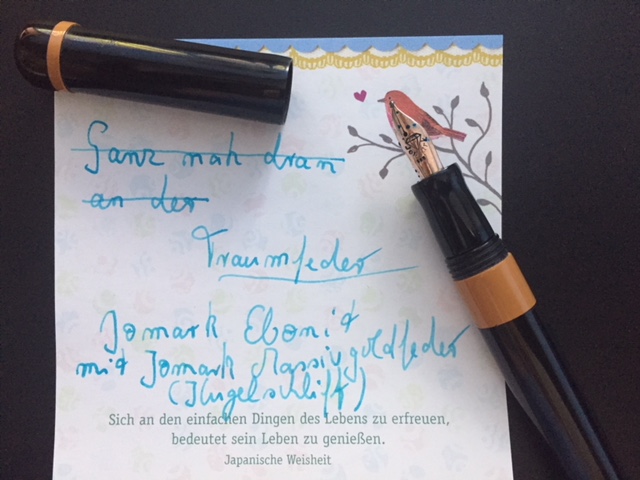 Ganz nah dran
an der
Traumfeder
Jomark Ebonit
mit Jomark Massivgoldfeder
(Kugelschliff)
Sich an den einfachen Dingen des Lebens zu erfreuen,
bedeutet sein Leben zu genießen.
Japanische Weisheit